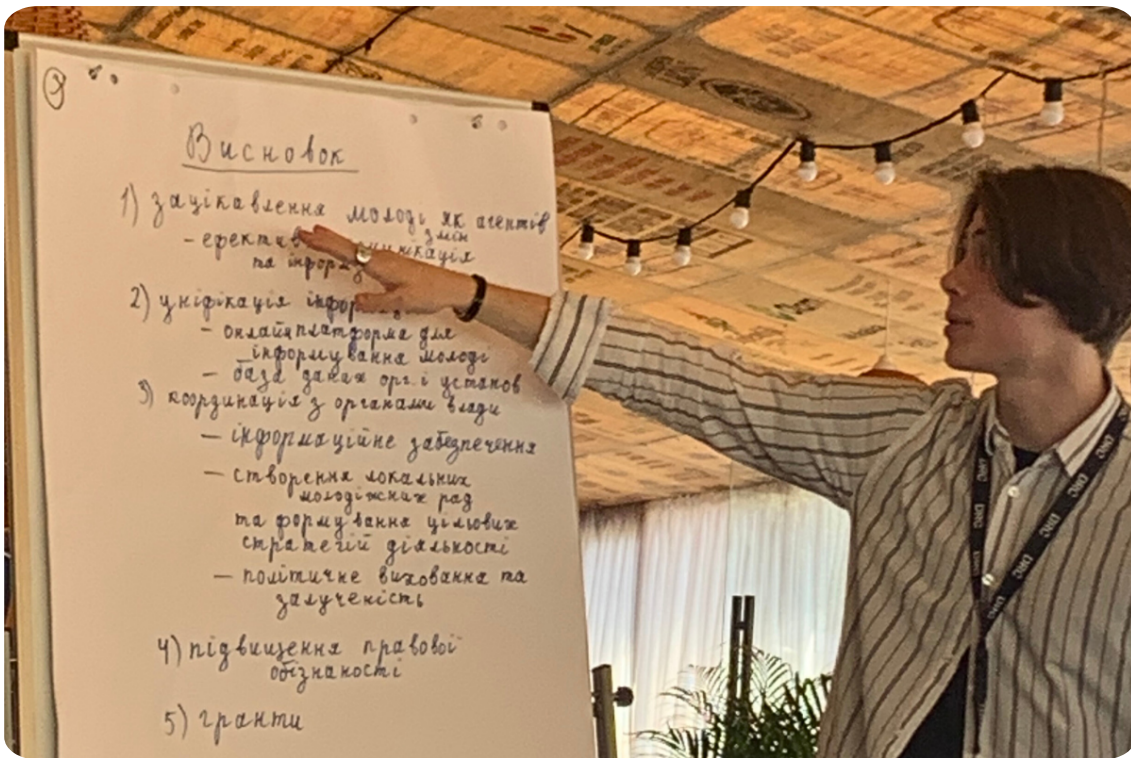 Висновок
1) зацікавлення молоді як агентів
змін
- ефектив унікація
та інформ
2) уніфікація інфор
- онлайн платформа для
інформування молоді
- база даних орг. і установ
3) координація з органами влади
- інформаційне забезпечення
- створення локальних
молодіжних рад
та формування цільових
стратегій діяльності
- політичне виховання та
залученість
4) підвищення правової
обізнаності
5) гранти
DRC
DRC
DRC
DRC
DRC